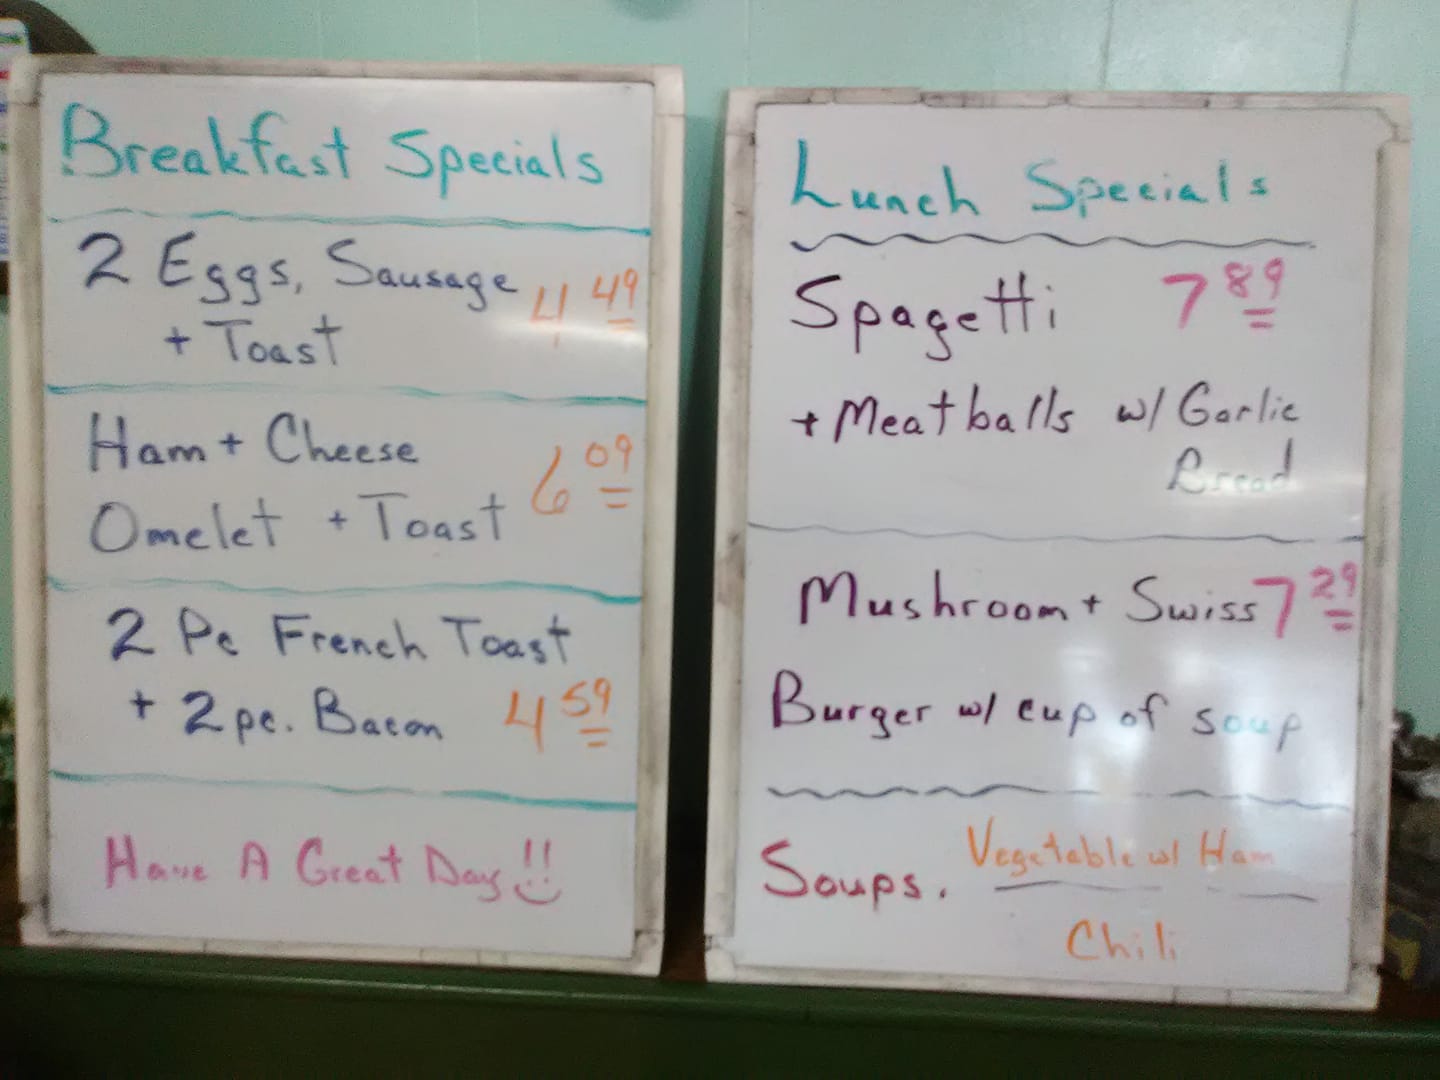 Breakfast Specials
2 Eggs, Sausage 4 49
+ Toast
Ham + Cheese 6 09
Omelet + Toast
2 Pc French Toast
+ 2 pc. Bacon 4 59
Have A Great Day!!
Lunch Specials
Spagetti 7 89
+ Meatballs w/ Garlic
Bread
Mushroom + Swiss 7 29
Burger w/ cup of soup
Soups. Vegetable w/ Ham
Chili